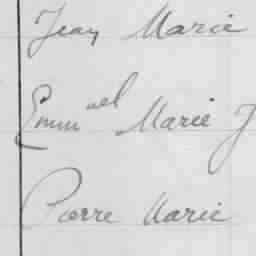 Jean Marie
Emmuel Marie J
Pierre Marie